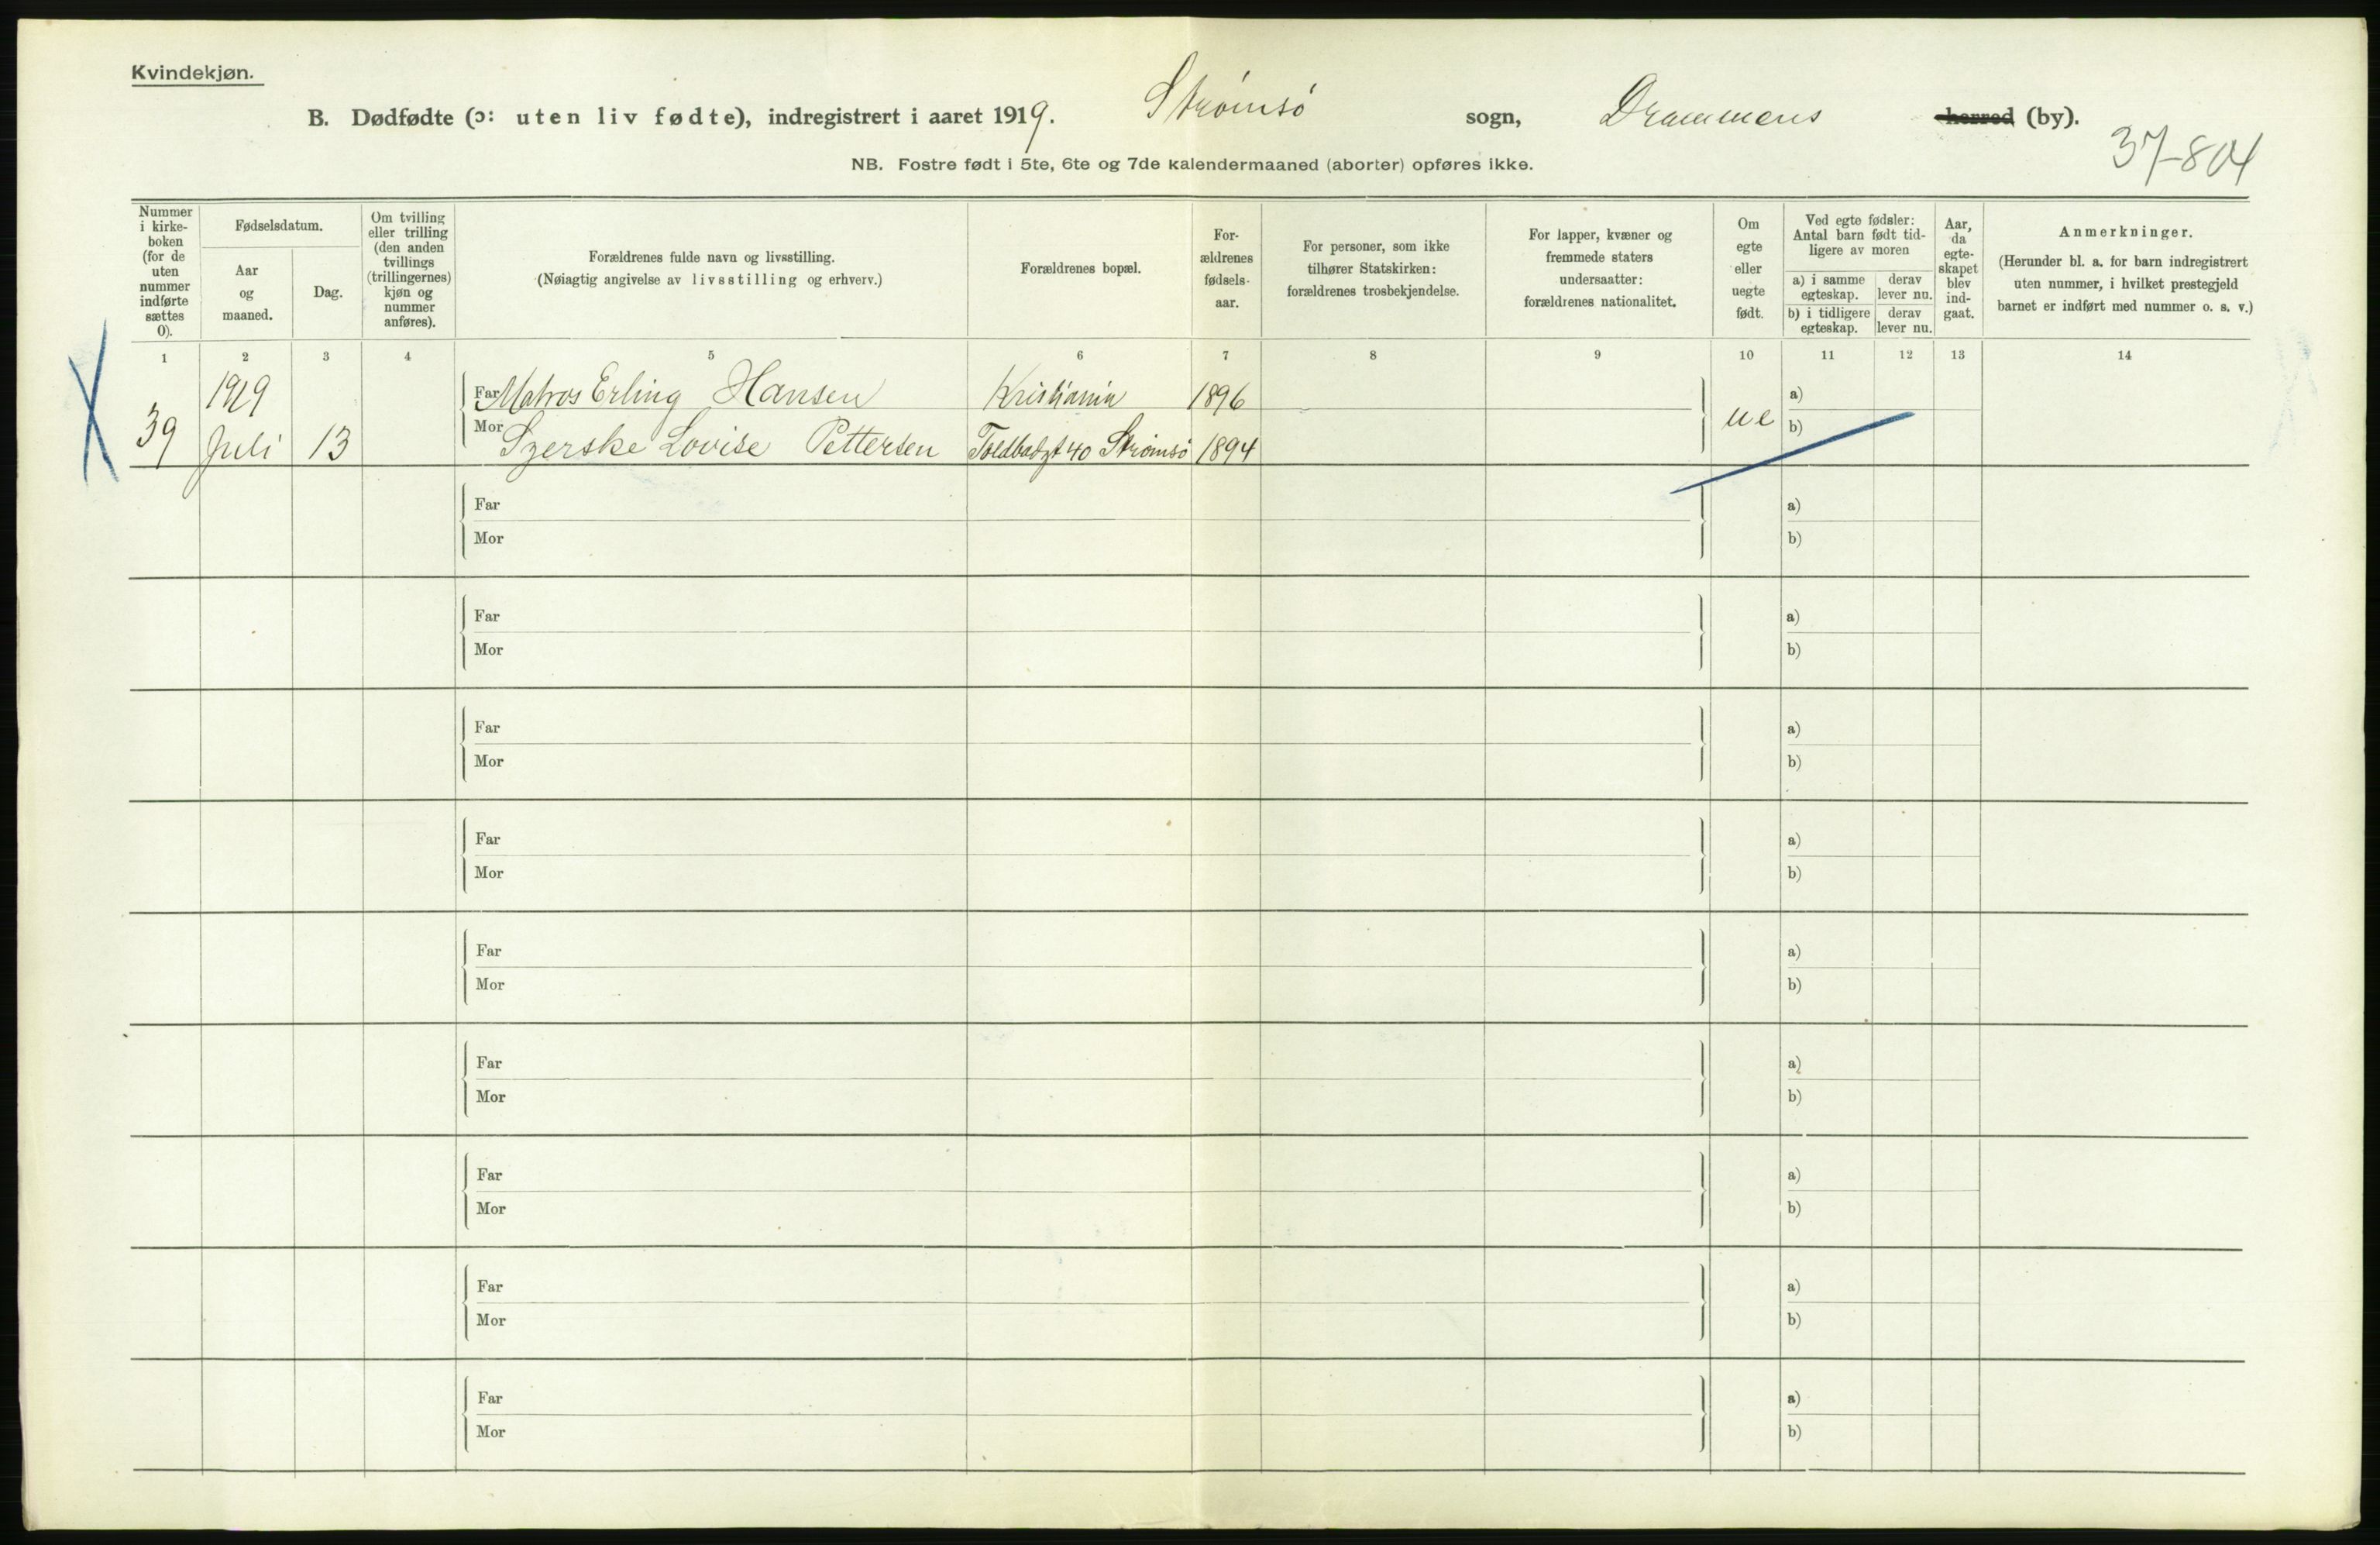 Kvindekjøn.
B. Dødfødte (ɔ: uten liv fødte), indregistrert i aaret 1919. Strømsø sogn, Drammens herred (by).
37-804
NB. Fostre født i 5te, 6te og 7de kalendermaaned (aborter) opføres ikke.
Nummer i kirke- boken (for de uten nummer indførte sættes 0).
Fødselsdatum.
Aar og maaned.
Dag.
Om tvilling eller trilling (den anden tvillings (trillingernes) kjøn og nummer anføres).
Forældrenes fulde navn og livsstilling.
(Nøiagtig angivelse av livsstilling og erhverv.)
Forældrenes bopæl.
For- ældrenes fødsels- aar.
For personer, som ikke tilhører Statskirken: forældrenes trosbekjendelse.
For lapper, kvæner og fremmede staters undersaatter: forældrenes nationalitet.
Om egte eller uegte født.
Ved egte fødsler: Antal barn født tid- ligere av moren
a) i samme egteskap. derav lever nu.
b) i tidligere egteskap. derav lever nu.
Aar, da egte- skapet blev ind- gaat.
Anmerkninger.
(Herunder bl. a. for barn indregistrert uten nummer, i hvilket prestegjeld barnet er indført med nummer o. s. v.)
1 2 3 4 5 6 7 8 9 10 11 12 13 14
1919 Far Matros Erling Hansen Kristiania 1896 a)
39 Juli 13 Mor Lovise Pettersen Toldbodgt 40 Strømsø 1894 ue b)
Far a)
Mor b)
Far a)
Mor b)
Far a)
Mor b)
Far a)
Mor b)
Far a)
Mor b)
Far a)
Mor b)
Far a)
Mor b)
Far a)
Mor b)
Far a)
Mor b)